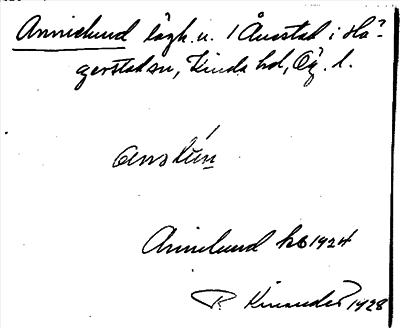 Annielund lägh. u. 1 Ånestad i Hä-
gerstad sn, Kinda hd, Ög. l.
Annelund hb 1924
R. Kinander 1928